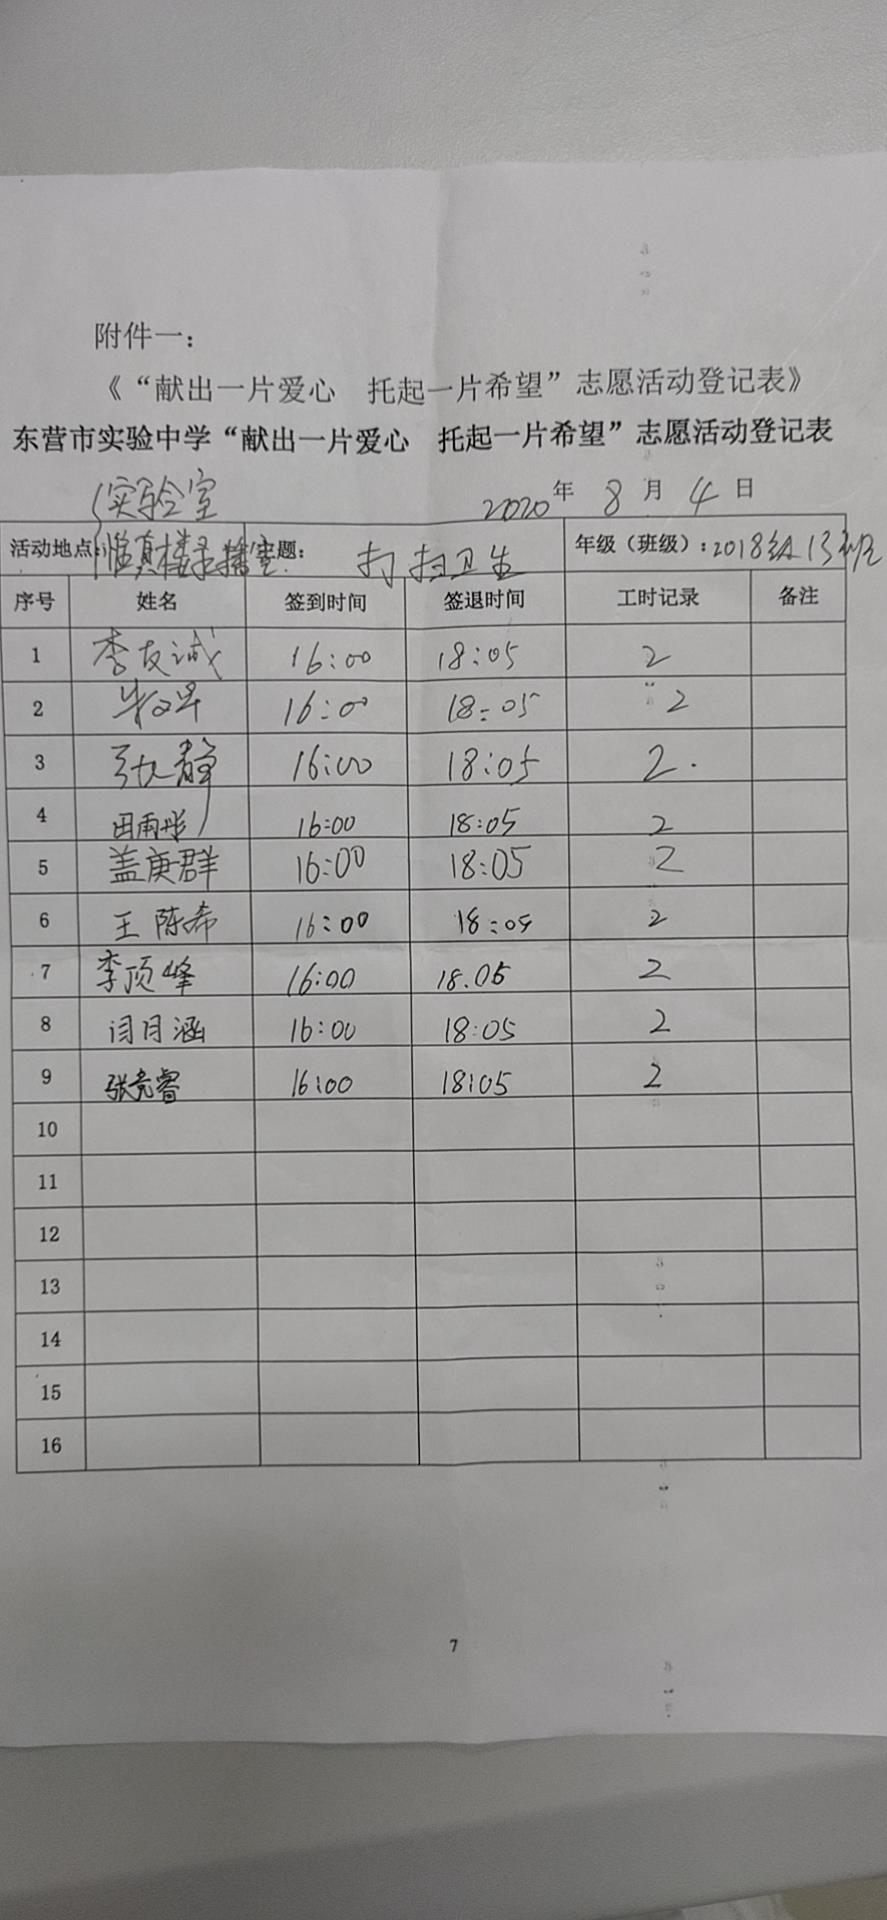 附件一：
《“献出一片爱心 托起一片希望”志愿活动登记表》
东营市实验中学“献出一片爱心 托起一片希望”志愿活动登记表
实验室 2020年 8月 4日
活动地点：惟真楼录播室 主题： 打扫卫生 年级（班级）：2018级13班
序号 姓名 签到时间 签退时间 工时记录 备注
1 李友诚 16:00 18:05 2
2 16:00 18:05 2
3 张静 16:00 18:05 2.
4 田雨彤 16:00 18:05 2
5 盖庚群 16:00 18:05 2
6 王陈希 16:00 18:05 2
7 李顶峰 16:00 18.05 2
8 闫月涵 16:00 18:05 2
9 张竞睿 16:00 18:05 2
10
11
12
13
14
15
16
7